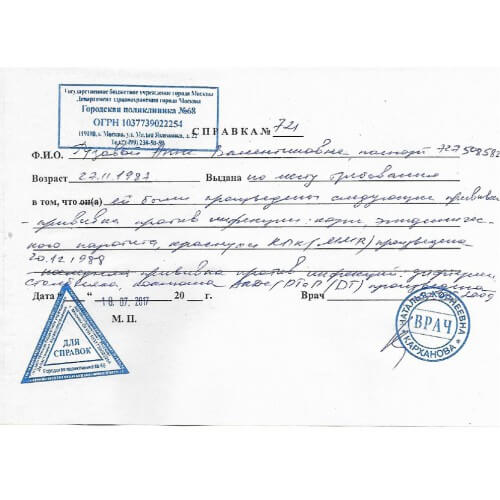 Государственное бюджетное учреждение города Москвы
Департамент здравоохранения города Москвы
Городская поликлиника №68
ОГРН 1037739022254
119180, г. Москва, ул. Малая Якиманка, д. 22
СПРАВКА № 721
Ф.И.О. Анне Валентиновне, паспорт
Возраст 22.11.1987 Выдана по месту требования
в том, что он(а) ей были произведены следующие прививки
- прививка против инфекции: кори, эпидемичес-
кого паротита, краснухи КПК (MMR) произведена
20.12.1988
прививка против инфекций: дифтерии,
столбняка, АКДС (DTaP/DT) произведена
Дата " " 18. 07. 2017 20 г. Врач 2009
М. П.
ДЛЯ
СПРАВОК
Городская поликлиника № 68
НАТАЛЬЯ КОРНЕЕВНА
ВРАЧ
КАРХАНОВА